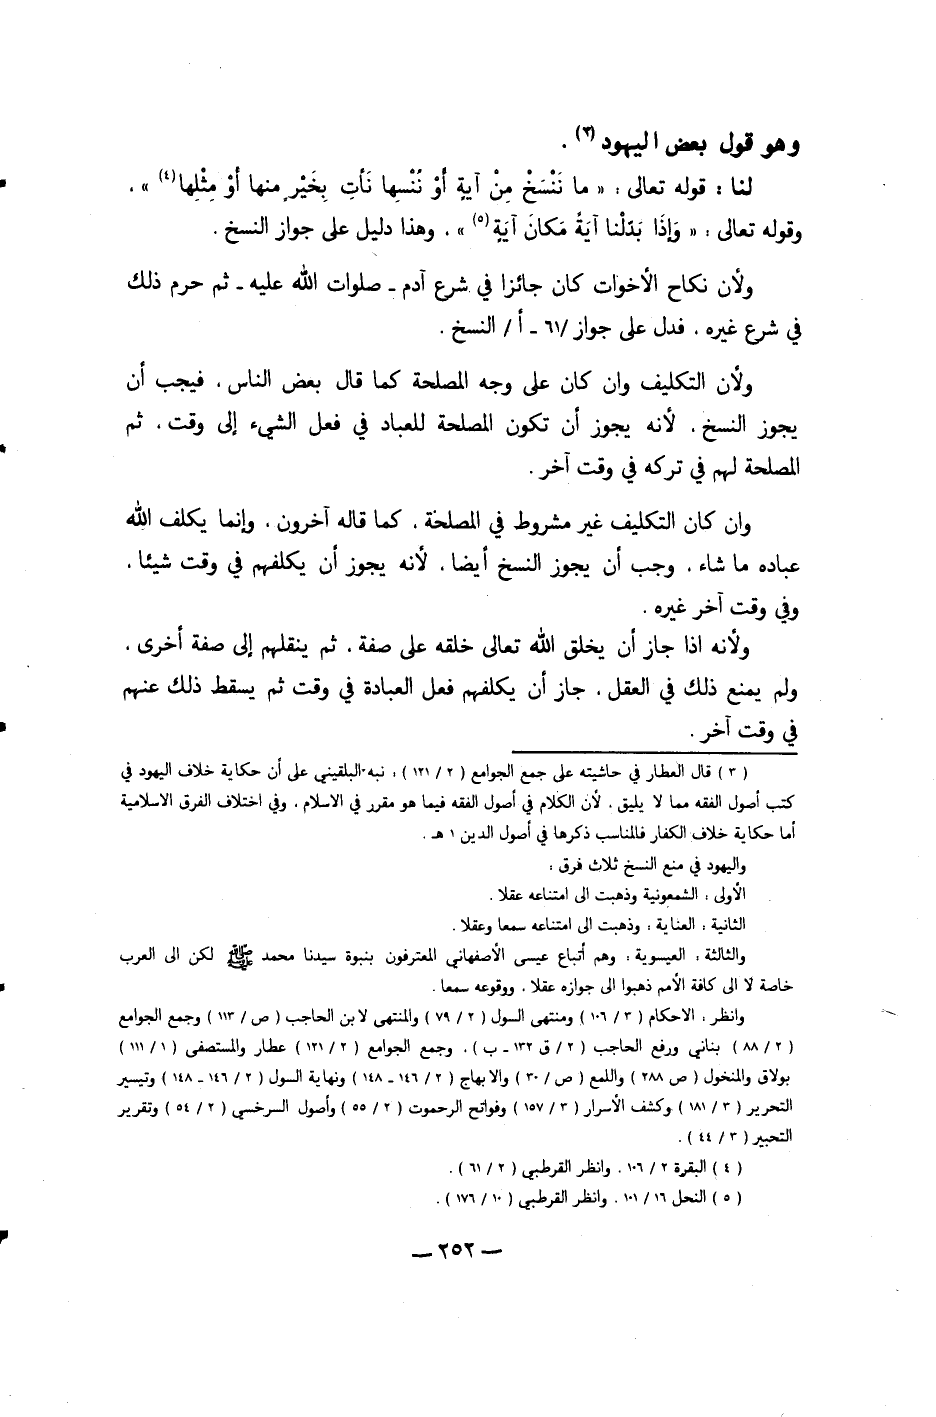 وهو قول بعض اليهود (٣) .
لنا : قوله تعالى : « ما نَنْسَخْ مِنْ آيةٍ أوْ نُنْسِها نَأتِ بِخَيْرٍ منها أوْ مِثْلِها (٤) » .
وقوله تعالى : « وَإذَا بَدّلْنا آيَةً مَكانَ آيَةٍ (٥) » . وهذا دليل على جواز النسخ .
ولأن نكاح الأخوات كان جائزا في شرع آدم ـ صلوات الله عليه ـ ثم حرم ذلك
في شرع غيره . فدل على جواز /٦١ ـ أ / النسخ .
ولأن التكليف وان كان على وجه المصلحة كما قال بعض الناس . فيجب أن
يجوز النسخ . لأنه يجوز أن تكون المصلحة للعباد في فعل الشيء إلى وقت . ثم
المصلحة لهم في تركه في وقت آخر .
وان كان التكليف غير مشروط في المصلحة . كما قاله آخرون . وإنما يكلف الله
عباده ما شاء . وجب أن يجوز النسخ أيضا . لأنه يجوز أن يكلفهم في وقت شيئا .
وفي وقت آخر غيره .
ولأنه اذا جاز أن يخلق الله تعالى خلقه على صفة . ثم ينقلهم إلى صفة أخرى .
ولم يمنع ذلك في العقل . جاز أن يكلفهم فعل العبادة في وقت ثم يسقط ذلك عنهم
في وقت آخر .
( ٣ ) قال العطار في حاشيته على جمع الجوامع ( ٢ / ١٢١ ) : نبه البلقيني على أن حكاية خلاف اليهود في
كتب أصول الفقه مما لا يليق . لأن الكلام في أصول الفقه فيما هو مقرر في الاسلام . وفي اختلاف الفرق الاسلامية
أما حكاية خلاف الكفار فالمناسب ذكرها في أصول الدين ١ هـ .
واليهود في منع النسخ ثلاث فرق :
الأولى : الشمعونية وذهبت الى امتناعه عقلا .
الثانية : العناية : وذهبت الى امتناعه سمعا وعقلا .
والثالثة : العيسوية : وهم أتباع عيسى الأصفهاني المعترفون بنبوة سيدنا محمد ﷺ لكن الى العرب
خاصة لا الى كافة الأمم ذهبوا الى جوازه عقلا . ووقوعه سمعا .
وانظر : الاحكام ( ٣ / ١٠٦ ) ومنتهى السول ( ٢ / ٧٩ ) والمنتهى لابن الحاجب ( ص / ١١٣ ) وجمع الجوامع
( ٢ / ٨٨ ) بناني ورفع الحاجب ( ٢ / ق ١٣٢ ـ ب ) . وجمع الجوامع ( ٢ / ١٢١ ) عطار والمستصفى ( ١ / ١١١ )
بولاق والمنخول ( ص ٢٨٨ ) واللمع ( ص / ٣٠ ) والابهاج ( ٢ / ١٤٦ ـ ١٤٨ ) ونهاية السول ( ٢ / ١٤٦ ـ ١٤٨ ) وتيسير
التحرير ( ٣ / ١٨١ ) وكشف الأسرار ( ٣ / ١٥٧ ) وفواتح الرحموت ( ٢ / ٥٥ ) وأصول السرخسي ( ٢ / ٥٤ ) وتقرير
التحبير ( ٣ / ٤٤ ) .
( ٤ ) البقرة ٢ / ١٠٦ . وانظر القرطبي ( ٢ / ٦١ ) .
( ٥ ) النحل ١٦ / ١٠١ . وانظر القرطبي ( ١٠ / ١٧٦ ) .
— ٢٥٢ —